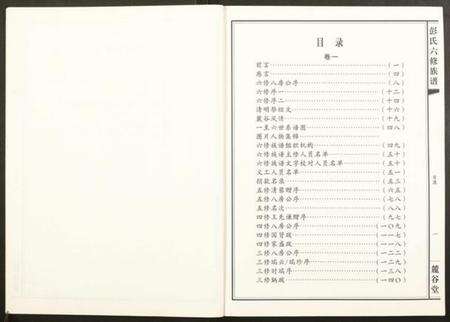 目录
卷一
前言……(一)
卷言……(四)
六修八房公序……(八)
六修序一……(十二)
六修序二……(十四)
清明祭祖文……(十六)
麓谷风情……(十九)
一至六世系谱图……(四八)
图片人物集锦
六修族谱组织机构……(四九)
六修族谱主修人员名单……(五十)
六修族谱文字校对人员名单……(五十)
文工人员名单……(五一)
捐款名录……(五二)
五修清翁赠序……(六五)
五修八房公序……(七八)
五修名次……(八八)
四修王先谦赠序……(九七)
四修八房公序……(一〇九)
四修国贤跋……(一一七)
四修家盛跋……(一一八)
三修八房公序……(一二二)
三修瑞云/瑞珍序……(一二九)
三修时瑞序……(一三八)
三修锅跋……(一四〇)
彭氏六修族谱
目录
一
麓谷堂